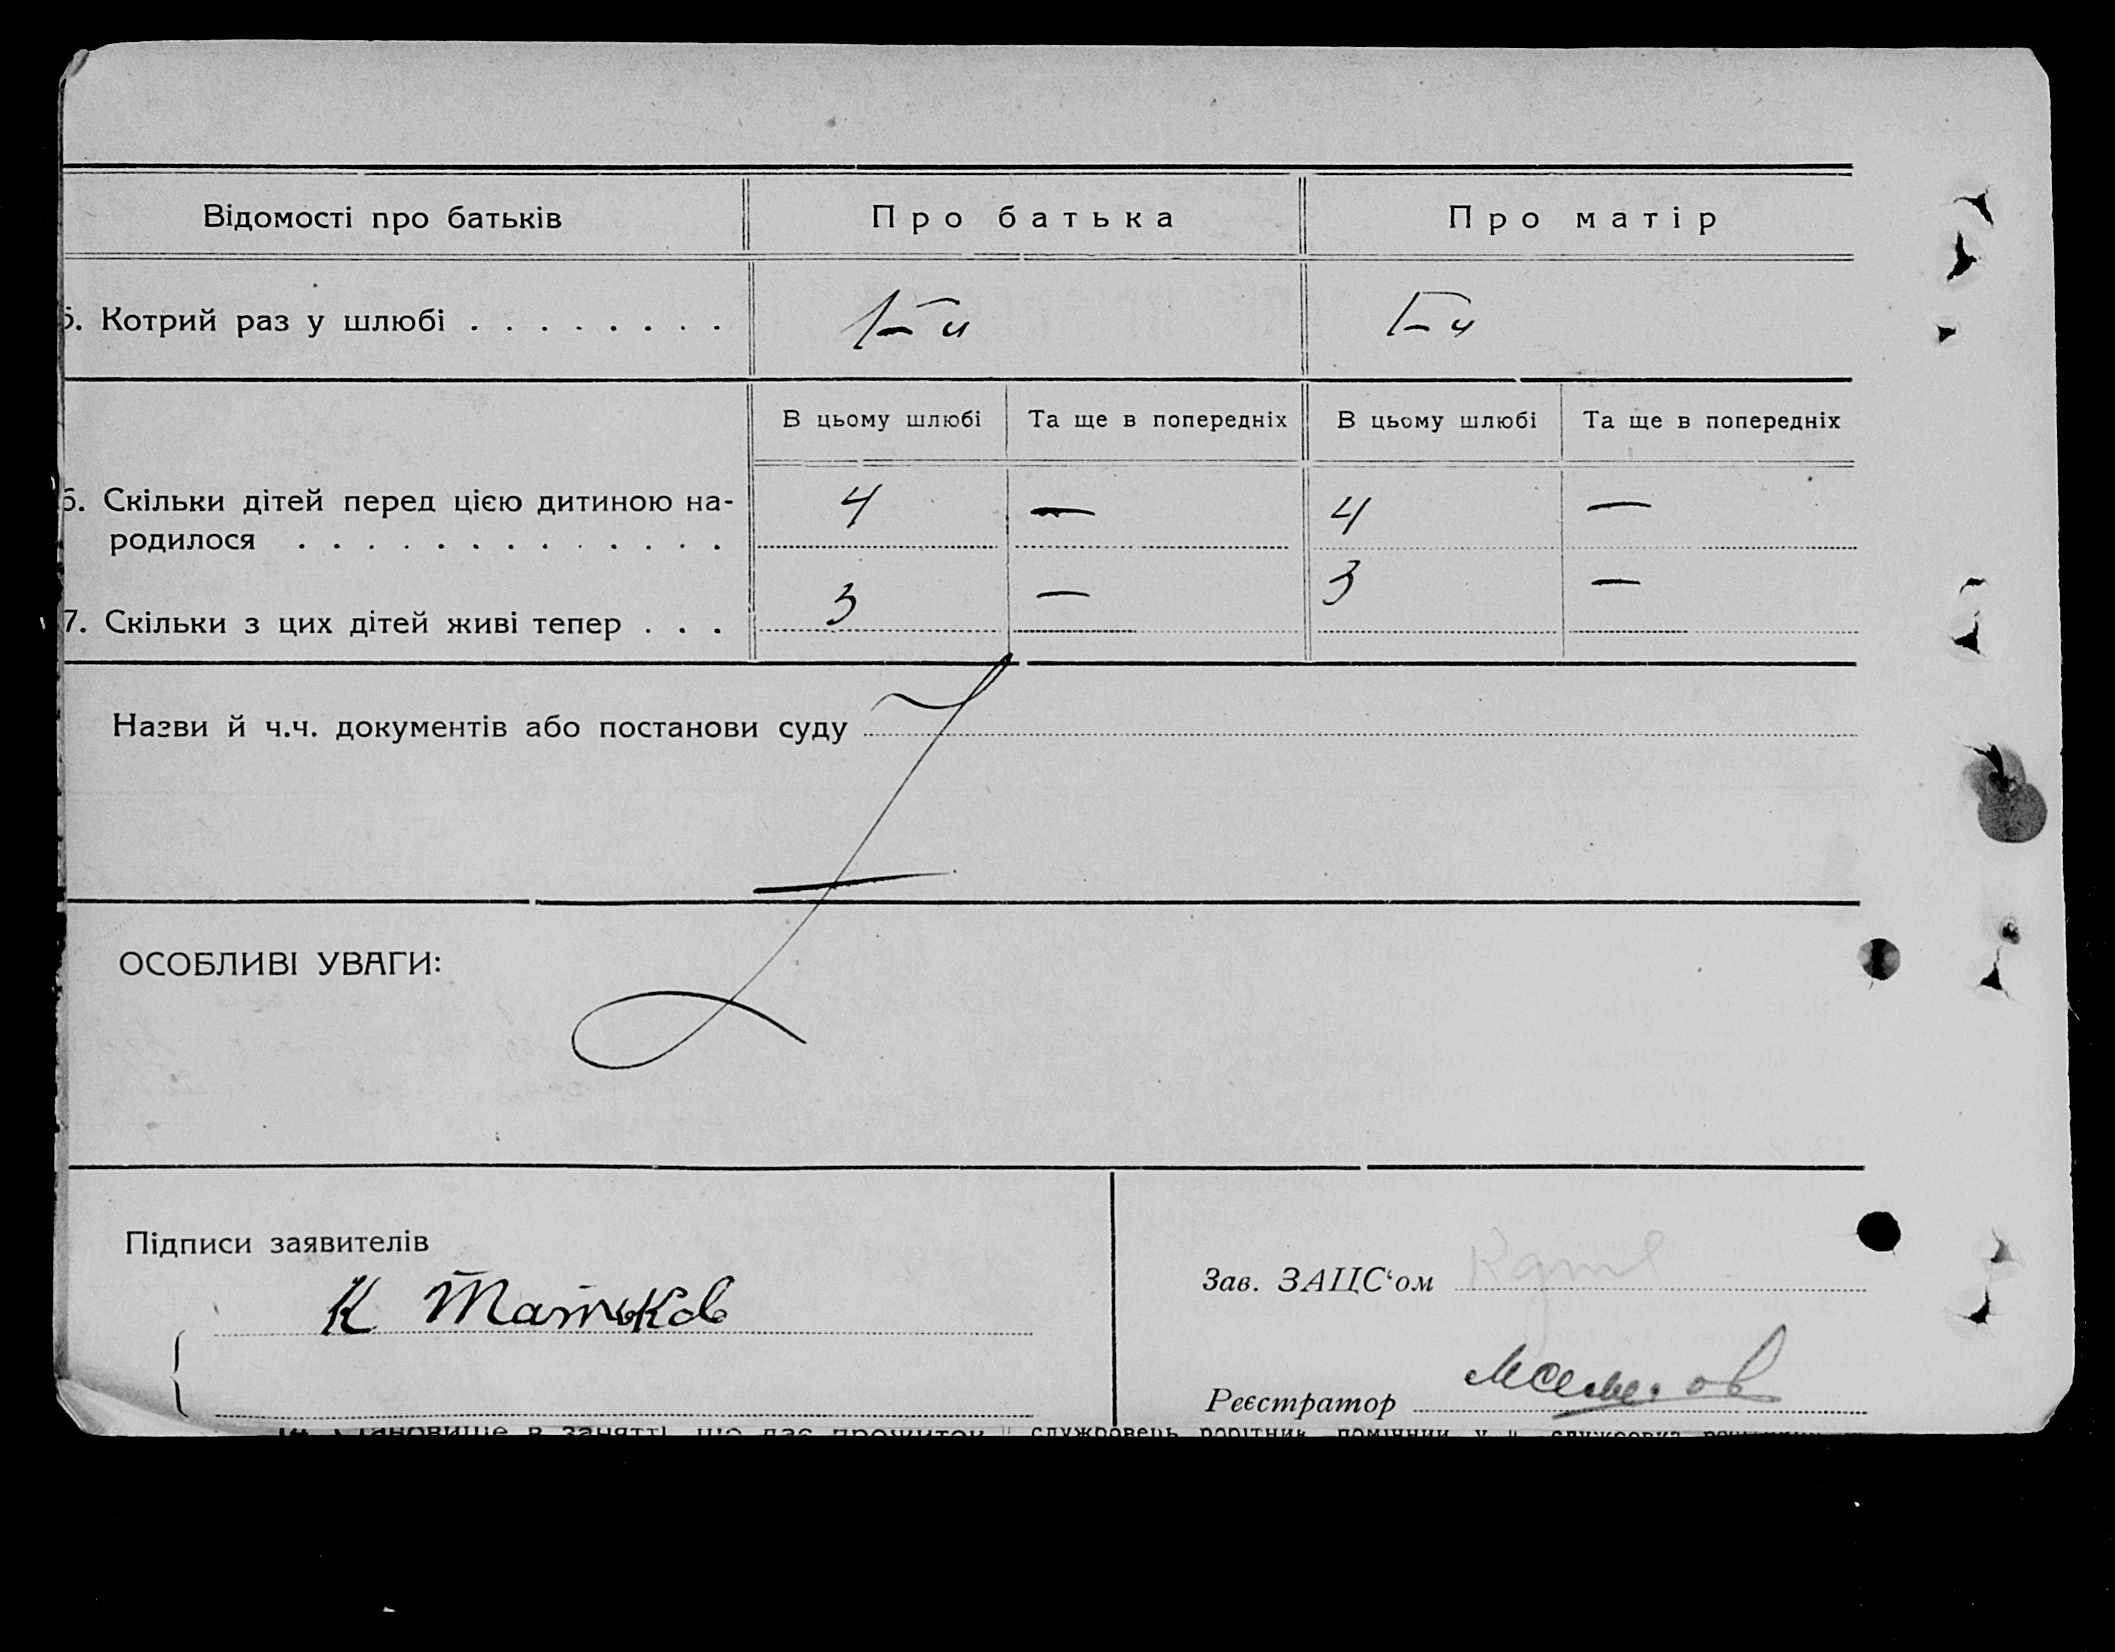 Відомості про батьків Про батька Про матір
5. Котрий раз у шлюбі . . . . . . . . 1-й 1-й
В цьому шлюбі Та ще в попередніх В цьому шлюбі Та ще в попередніх
6. Скільки дітей перед цією дитиною на- 4 — 4 —
родилося . . . . . . . . . . . . .
7. Скільки з цих дітей живі тепер . . . 3 — 3 —
Назви й ч.ч. документів або постанови суду
ОСОБЛИВІ УВАГИ:
Підписи заявителів
Зав. ЗАЦС‘ом
К Татьков
Реєстратор
Становище в занятті, що дає прожиток